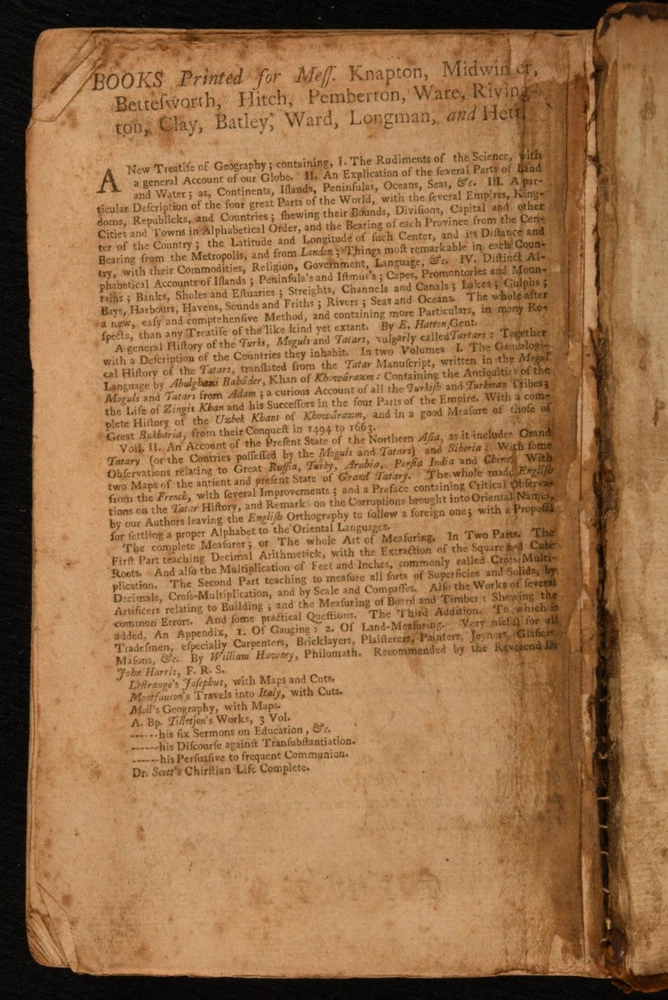 BOOKS Printed for Meſſ. Knapton, Midwinter,
Bettesworth, Hitch, Pemberton, Ware, Riving-
ton, Clay, Batley, Ward, Longman, and Hett.
A New Treatiſe of Geography; containing, I. The Rudiments of the Science, with
a general Account of our Globe. II. An Explication of the ſeveral Parts of Land
and Water; as, Continents, Iſlands, Peninſulas, Oceans, Seas, &c. III. A par-
ticular Deſcription of the four great Parts of the World, with the ſeveral Empires, King-
doms, Republicks, and Countries; ſhewing their Bounds, Diviſions, Capital and other
Cities and Towns in Alphabetical Order, and the Bearing of each Province from the Cen-
ter of the Country; the Latitude and Longitude of ſuch Center, and its Diſtance and
Bearing from the Metropolis, and from London; Things moſt remarkable in each Coun-
try, with their Commodities, Religion, Government, Language, &c. IV. Diſtinct Al-
phabetical Accounts of Iſlands; Peninſula's and Iſtmus's; Capes, Promontories and Moun-
tains; Banks, Sholes and Eſtuaries; Streights, Channels and Canals; Lakes; Gulphs;
Bays, Harbours, Havens, Sounds and Friths; Rivers; Seas and Oceans. The whole after
a new, eaſy and comptehenſive Method, and containing more Particulars, in many Re-
ſpects, than any Treatiſe of the like kind yet extant. By E. Hatton, Gent.
A general Hiſtory of the Turks, Moguls and Tatars, vulgarly called Tartars: Together
with a Deſcription of the Countries they inhabit. In two Volumes I. The Genealogi-
cal Hiſtory of the Tatars, tranſlated from the Tatar Manuſcript, written in the Mogul
Language by Abulghazi Bahâder, Khan of Khowârazm: Containing the Antiquities of the
Moguls and Tatars from Adam; a curious Account of all the Turkiſh and Turkman Tribes;
the Life of Zingis Khan and his Succeſſors in the four Parts of the Empire. With a com-
plete Hiſtory of the Uzbek Khans of Khowârazm, and in a good Meaſure of thoſe of
Great Bukharia, from their Conqueſt in 1494 to 1663.
Vol. II. An Account of the Preſent State of the Northern Aſia, as it includes Grand
Tatary (or the Contries poſſeſſed by the Moguls and Tatars) and Siberia: With ſome
Obſervations relating to Great Ruſſia, Turky, Arabia, Perſia India and China. With
two Maps of the antient and preſent State of Grand Tatary. The whole made Engliſh
from the French, with ſeveral Improvements; and a Preface containing Critical Obſerva-
tions on the Tatar Hiſtory, and Remarks on the Corruptions brought into Oriental Names,
by our Authors leaving the Engliſh Orthography to follow a foreign one; with a Propoſal
for ſettling a proper Alphabet to the Oriental Languages.
The complete Meaſurer; or The whole Art of Meaſuring. In Two Parts. The
Firſt Part teaching Decimal Arithmetick, with the Extraction of the Square and Cube
Roots. And alſo the Multiplication of Feet and Inches, commonly called Croſs-Multi-
plication. The Second Part teaching to meaſure all ſorts of Superficies and Solids, by
Decimals, Croſs-Multiplication, and by Scale and Compaſſes. Alſo the Works of ſeveral
Artificers relating to Building; and the Meaſuring of Board and Timber: Shewing the
common Errors. And ſome practical Queſtions. The Third Addition. To which is
added, An Appendix, 1. Of Gauging: 2. Of Land-Meaſuring. Very uſeful for all
Tradeſmen, eſpecially Carpenters, Bricklayers, Plaiſterers, Painters, Joyners, Glaſiers
Maſons, &c. By William Hawney, Philomath. Recommended by the Reverend Dr
John Harris, F. R. S.
L'eſtrange's Joſephus, with Maps and Cuts.
Montfaucon's Travels into Italy, with Cuts.
Moll's Geography, with Maps.
A. Bp. Tillotſon's Works, 3 Vol.
------his ſix Sermons on Education, &c.
------his Diſcourſe againſt Tranſubſtantiation.
------his Perſuaſive to frequent Communion.
Dr. Scott's Chirſtian Life Complete.